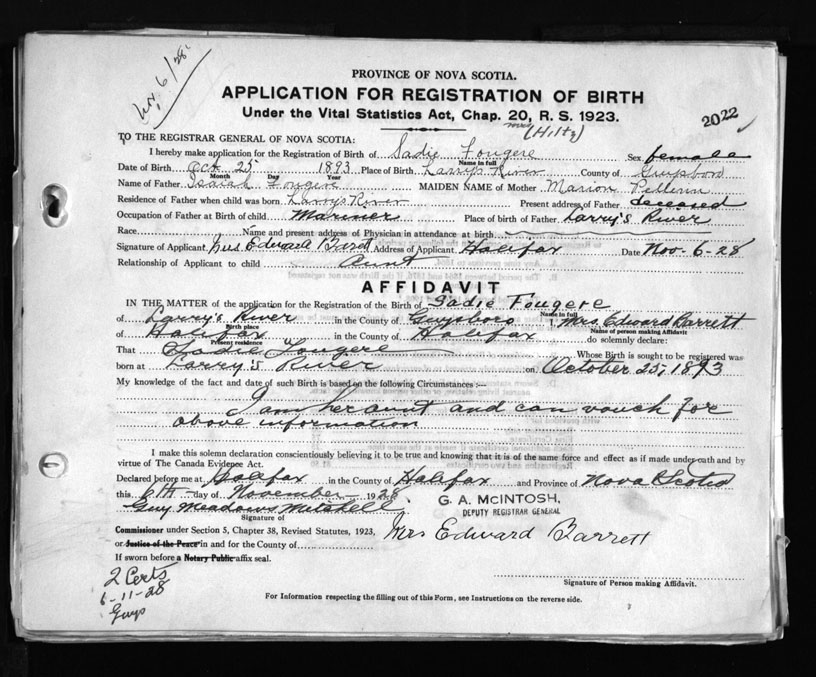 Nov. 6/28
PROVINCE OF NOVA SCOTIA.
APPLICATION FOR REGISTRATION OF BIRTH
Under the Vital Statistics Act, Chap. 20, R. S. 1923.
2022
Mrs (Hilty)
TO THE REGISTRAR GENERAL OF NOVA SCOTIA:
I hereby make application for the Registration of Birth of Sadie Fougere Sex female
Name in full
Date of Birth Oct 25 1893 Place of Birth Larrys River County of Guysboro
Month Day Year
Name of Father Isaiah Fougere MAIDEN NAME of Mother Marion Pellerin
Residence of Father when child was born Larrys River Present address of Father deceased
Occupation of Father at Birth of child Mariner Place of birth of Father Larry's River
Race Name and present address of Physician in attendance at birth
Signature of Applicant Mrs Edward Barett Address of Applicant Halifax Date Nov-6-28
Relationship of Applicant to child Aunt
AFFIDAVIT
IN THE MATTER of the application for the Registration of the Birth of Sadie Fougere
Name in full
of Larry's River in the County of Guysboro I, Mrs Edward Barrett
Birth place Name of person making Affidavit
of Halifax in the County of Halifax do solemnly declare:
Present residence
That Sadie Fougere Whose Birth is sought to be registered was
born at Larry's River on October 25, 1893
My knowledge of the fact and date of such Birth is based on the following Circumstances :—
I am her aunt and can vouch for
above information
I make this solemn declaration conscientiously believing it to be true and knowing that it is of the same force and effect as if made under oath and by
virtue of The Canada Evidence Act.
Declared before me at Halifax in the County of Halifax and Province of Nova Scotia
this 6th day of November 1928
G. A. McINTOSH,
DEPUTY REGISTRAR GENERAL
Guy Meadows Mitchell
Signature of
Commissioner under Section 5, Chapter 38, Revised Statutes, 1923,
Mrs Edward Barrett
or Justice of the Peace in and for the County of
If sworn before a Notary Public affix seal.
Signature of Person making Affidavit.
2 Certs
6-11-28
Guys
For Information respecting the filling out of this Form, see Instructions on the reverse side.